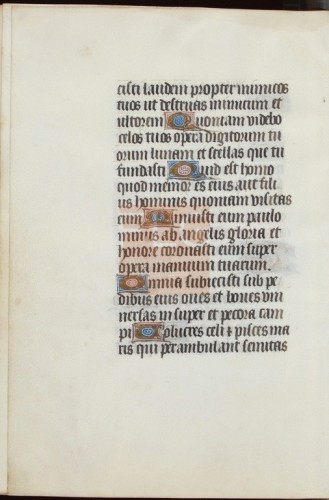 cisti laudem propter inimicos
tuos ut destruas inimicum et
ultorem Quoniam videbo
celos tuos opera digitorum tu
orum lunam et stellas que tu
fundasti Quid est homo
quod memor es eius aut fili
us hominis quoniam visitas
eum Minuisti eum paulo
minus ab angelis gloria et
honore coronasti eum super
opera manuum tuarum.
Omnia subiecisti sub pe
dibus eius oves et boves uni
versas in super et pecora cam
pi Volucres celi & pisces ma
ris qui perambulant semitas